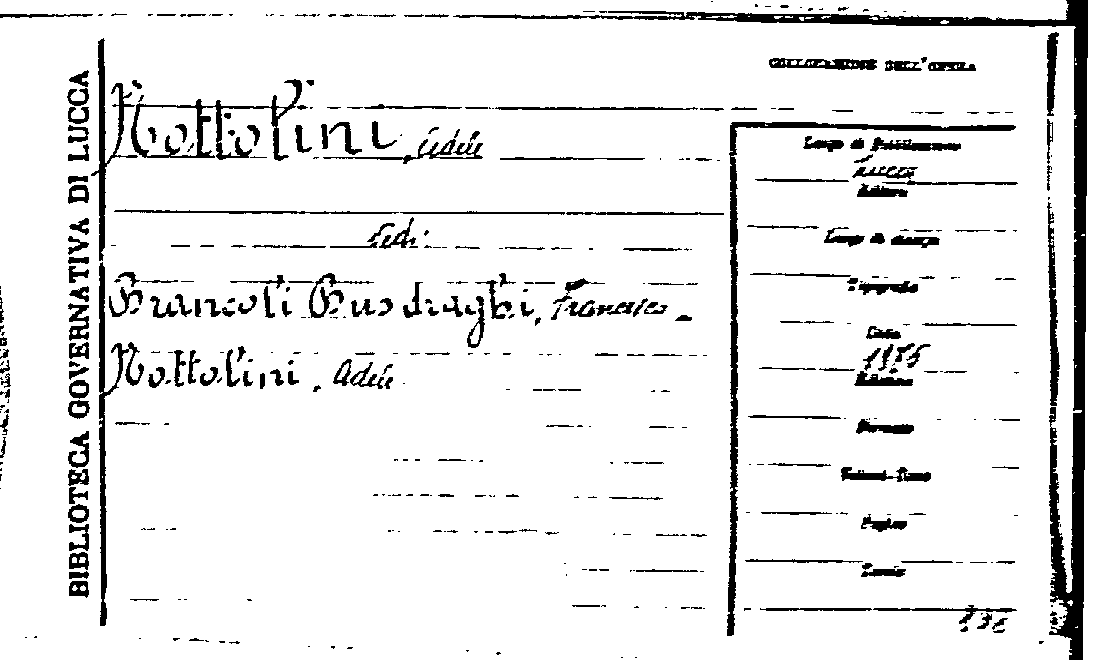 BIBLIOTECA GOVERNATIVA DI LUCCA
COLLOCAZIONE DELL'OPERA
Nottolini, Adele
Vedi:
Brancoli Busdraghi, Francesco -
Nottolini, Adele
Luogo di Pubblicazione
Lucca
Editore
Luogo di stampa
Tipografia
Data
Edizione
Formato
Volumi-Tomi
Pagine